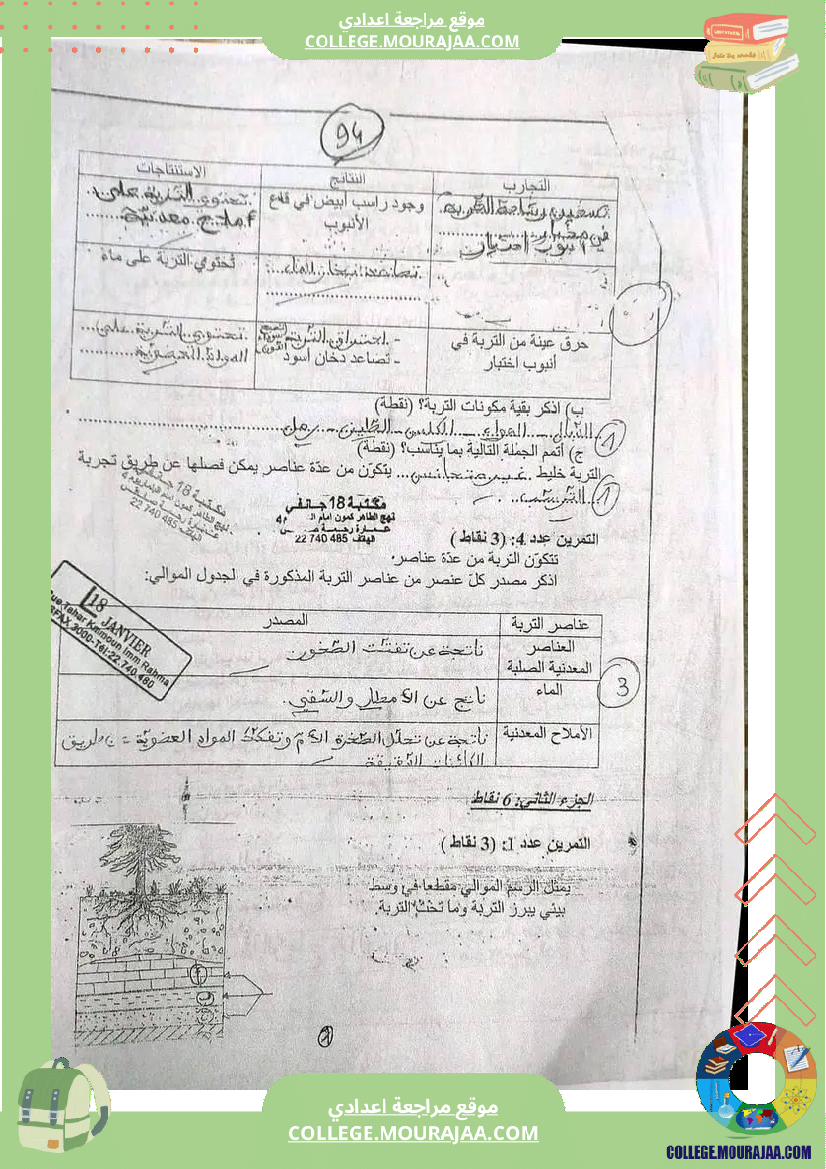 موقع مراجعة اعدادي
COLLEGE.MOURAJAA.COM
94
التجارب
النتائج
الاستنتاجات
تسخين رشاحة التربة
في
أنبوب اختبار
وجود راسب أبيض في قاع
الأنبوب
تحتوي التربة على
أملاح معدنية
تصاعد بخار الماء
تحتوي التربة على ماء
حرق عينة من التربة في
أنبوب اختبار
- احتراق التربة
- تصاعد دخان أسود
تحتوي التربة على
المواد العضوية
ب) اذكر بقية مكونات التربة؟ (نقطة)
الدبال - الهواء - الكلس - الطين - رمل
1
ج) أتمم الجملة التالية بما يناسب؟ (نقطة)
التربة خليط غير متجانس يتكون من عدة عناصر يمكن فصلها عن طريق تجربة
الترسيب
1
مكتبة 18 جانفي
نهج الطاهر كمون امام
الهاتف 485 740 22
مكتبة 18 جانفي
22 740 485
التمرين عدد 4: (3 نقاط)
تتكون التربة من عدة عناصر.
اذكر مصدر كل عنصر من عناصر التربة المذكورة في الجدول الموالي:
18 JANVIER
Rue Tahar Kammoun Imm Rahma
SFAX 3000-Tél:22.740.480
عناصر التربة
المصدر
العناصر
المعدنية الصلبة
ناتجة عن تفتت الصخور
الماء
ناتج عن الأمطار والسقي.
3
الأملاح المعدنية
ناتجة عن تحلل الصخرة الأم وتفكك المواد العضوية عن طريق
الكائنات الدقيقة
الجزء الثاني: 6 نقاط
التمرين عدد 1: (3 نقاط)
يمثل الرسم الموالي مقطعا في وسط
بيئي يبرز التربة وما تحت التربة.
موقع مراجعة اعدادي
COLLEGE.MOURAJAA.COM
COLLEGE.MOURAJAA.COM